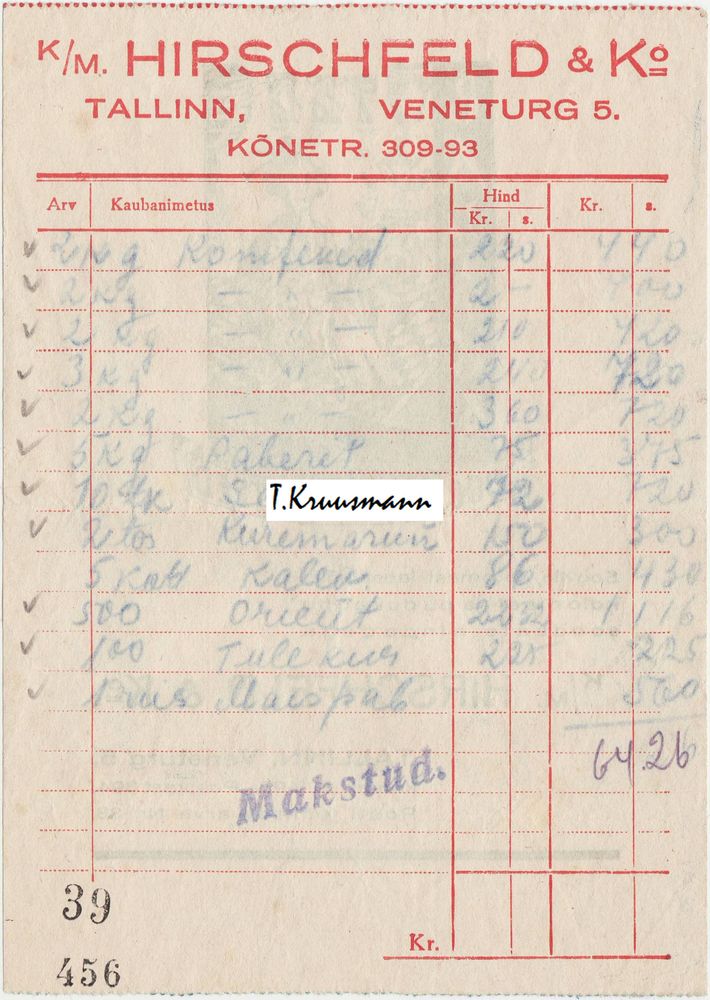 K/M. HIRSCHFELD & Ko
TALLINN, VENETURG 5.
KÕNETR. 309-93
Arv Kaubanimetus Hind Kr. s. Kr. s.
2 kg Komfekid 220 440
2 kg — „ — 2 — 400
2 kg — „ — 210 420
3 kg — „ — 240 720
2 kg — „ — 360 720
5 kg Paberit 75 375
10 tk 72 720
T.Kruusmann
2 tos Kuremarjun 150 300
5 Kalev 86 430
500 Orient 1116
100 Tulekus 225 225
1 Maispab 560
64.26
Makstud.
39
Kr.
456